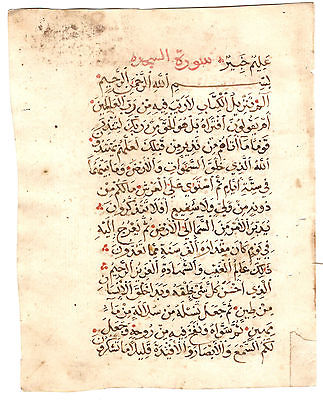 عليم خبير سورة السجدة
بسم الله الرحمن الرحيم
الم تنزيل الكتاب لا ريب فيه من رب العالمين
أم يقولون افتراه بل هو الحق من ربك لتنذر
قوما ما أتاهم من نذير من قبلك لعلهم يهتدون
الله الذي خلق السموات والأرض وما بينهما
في ستة أيام ثم استوى على العرش ما لكم من
دونه من ولي ولا شفيع أفلا تتذكرون
يدبر الأمر من السماء إلى الأرض ثم يعرج إليه
في يوم كان مقداره ألف سنة مما تعدون
ذلك عالم الغيب والشهادة العزيز الرحيم
الذي أحسن كل شيء خلقه وبدأ خلق الإنسان
من طين ثم جعل نسله من سلالة من ماء
مهين ثم سواه ونفخ فيه من روحه وجعل
لكم السمع والأبصار والأفئدة قليلا ما تشكرون